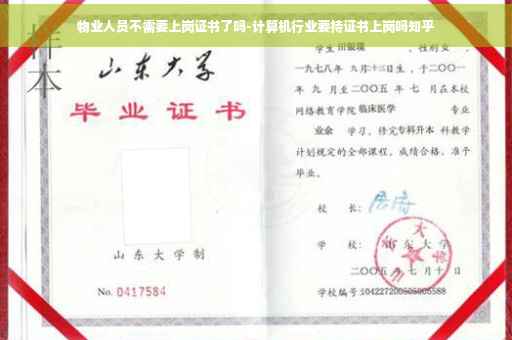 物业人员不需要上岗证书了吗-计算机行业要持证书上岗吗知乎
样本
山东大学
毕业证书
山东大学制
No. 0417584
学生田银瑞 ，性别女 ，
一九七八年 九月十三日生，于二〇〇一
年 九 月至二〇〇五 年 七 月在本校
网络教育学院临床医学 专业
业余 学习，修完专科升本 科教学
计划规定的全部课程，成绩合格，准予
毕业。
校 长：
学 校：山东大学
二〇〇五 年 七 月 十 日
学校编号:104227200505005588